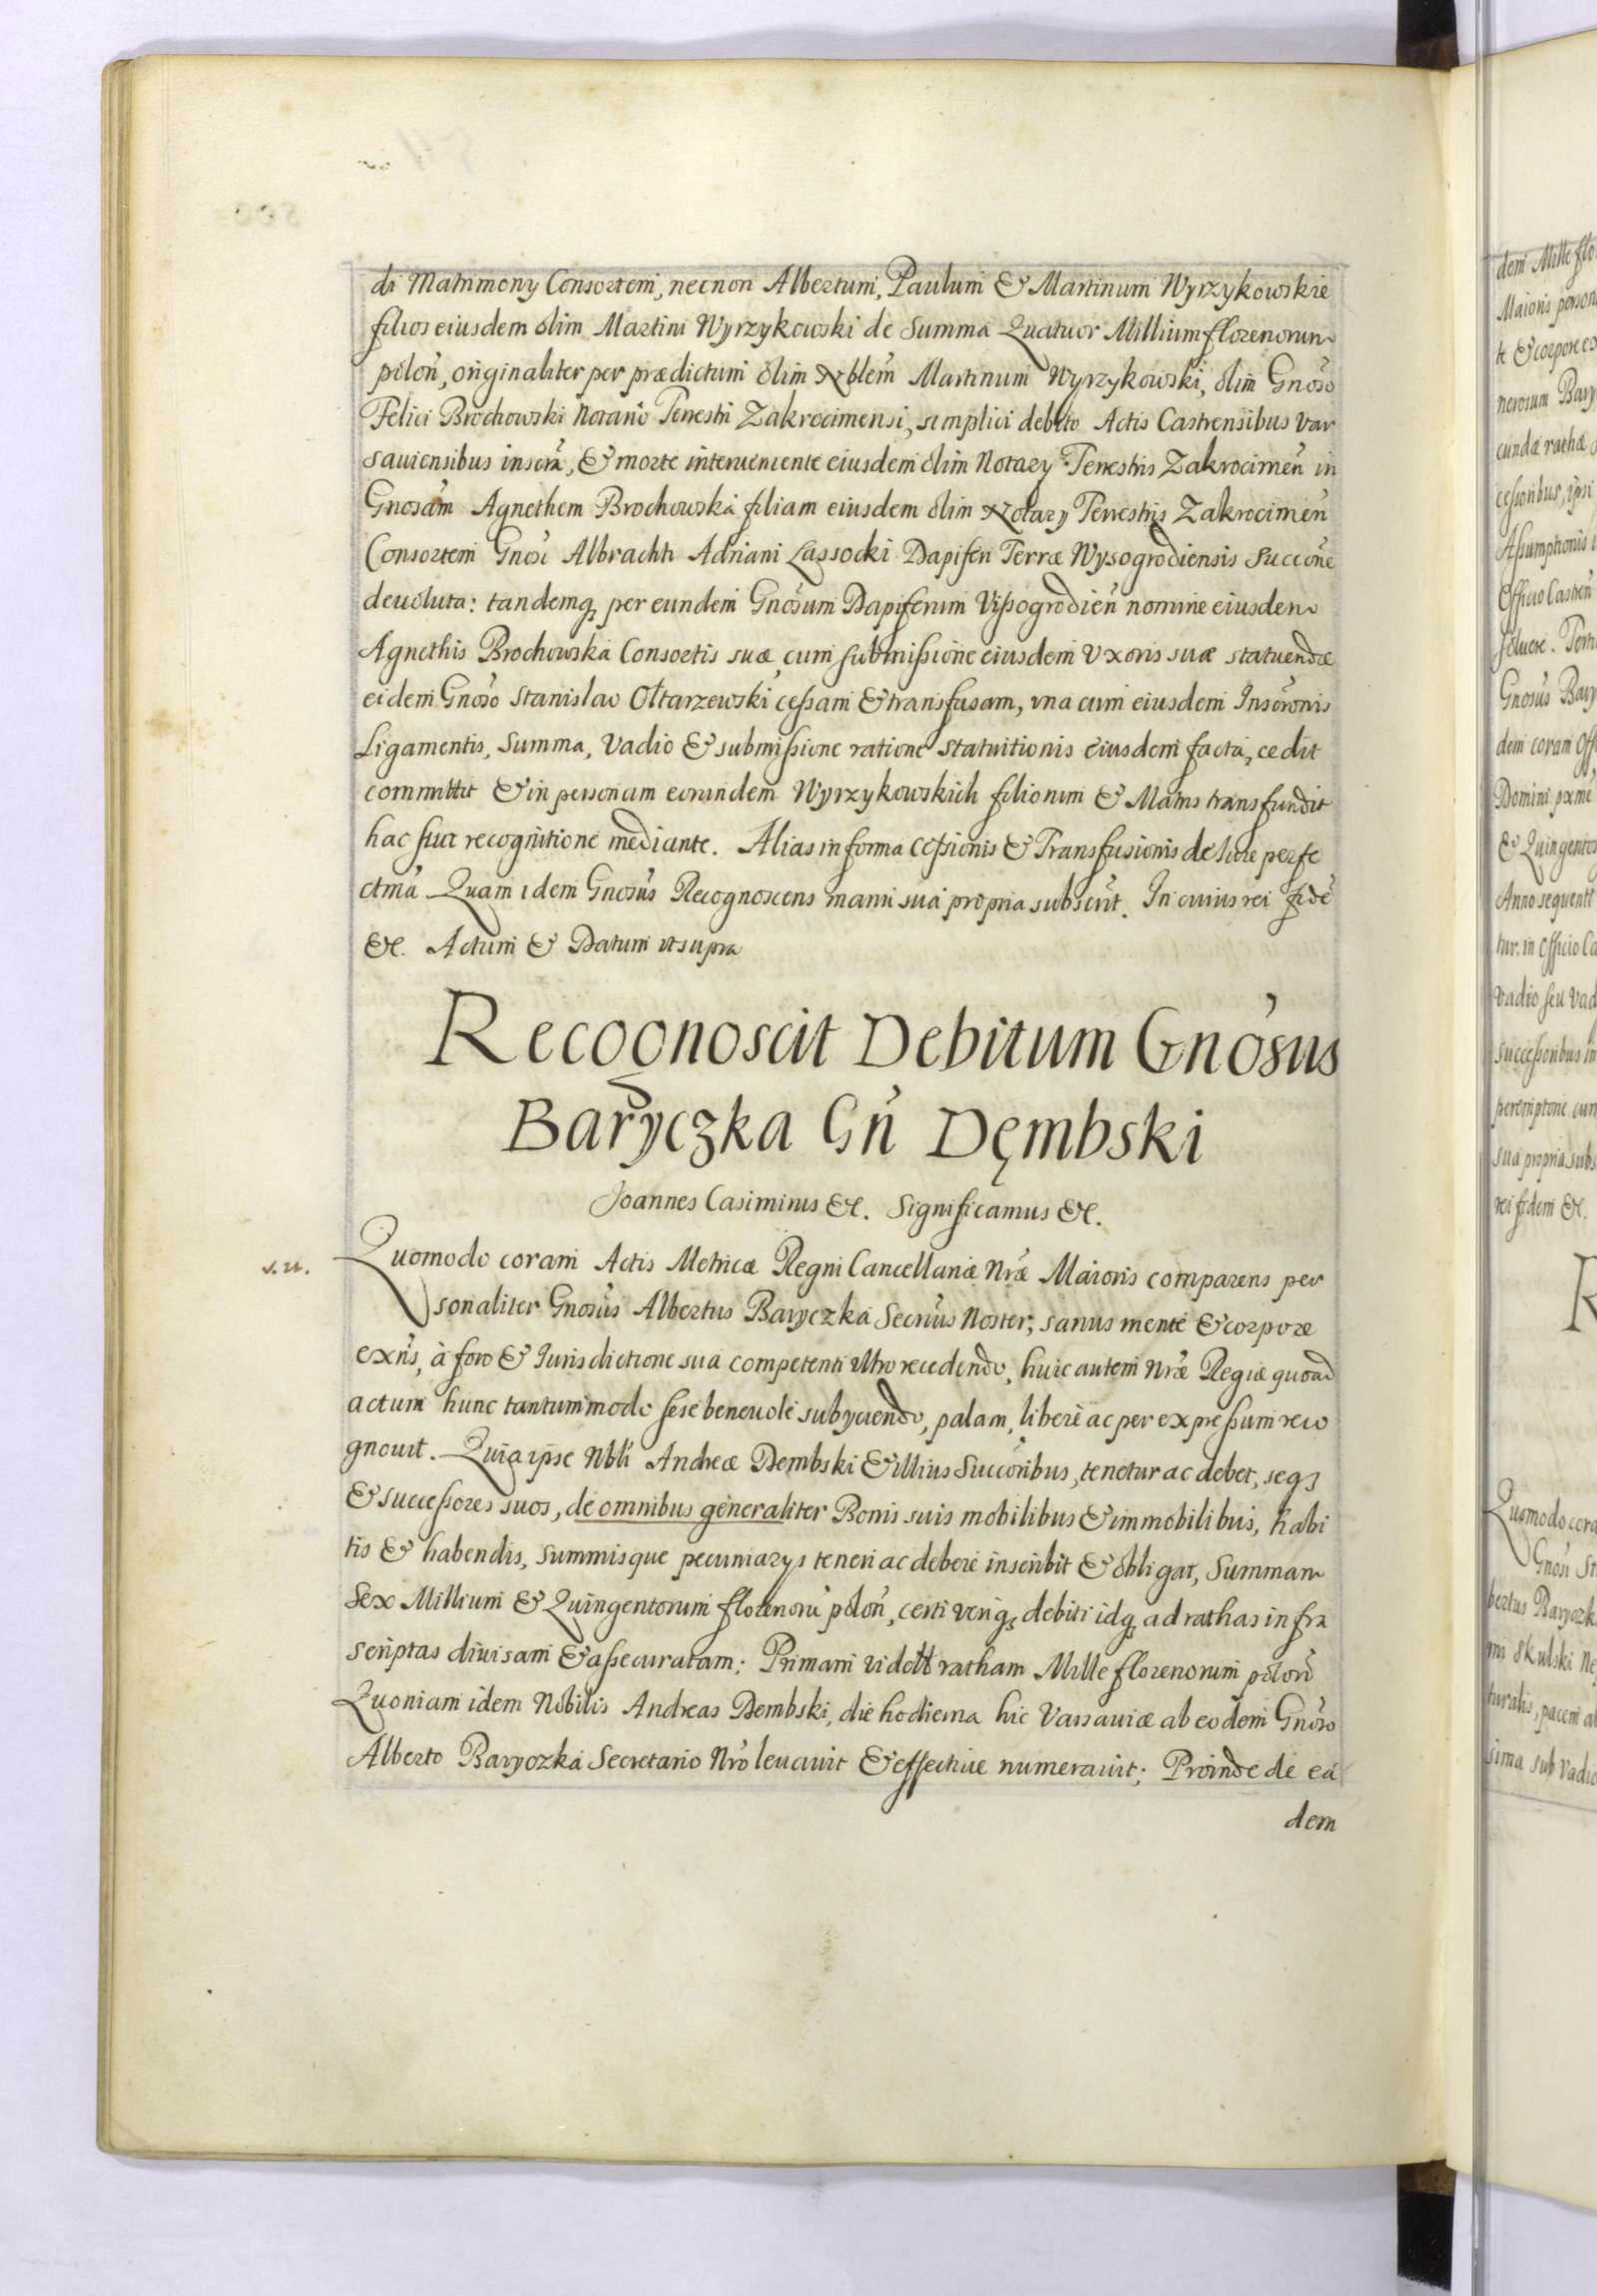 di Matrimony Consortem, necnon Albertum, Paulum & Martinum Wyrzykowskie
filios eiusdem olim Martini Wyrzykowski de Summa Quatuor Millium florenorum
polon̄, originaliter per prædictum olim Nblem̄ Martinum Wyrzykowski, olim Gnōso
Felici Brochowski Notario Terrestri Zakrocimensi, simplici debito Actis Castrensibus Var
sauiensibus inscrā, & morte interueniente eiusdem olim Notary Terrestris Zakrocimen̄ in
Gnosām Agnethem Brochowska filiam eiusdem olim Notary Terrestris Zakrocimen̄
Consortem Gnōsi Albrachti Adriani Lassocki Dapiferi Terræ Wysogrodiensis Succōne
deuoluta: tandemq; per eundem Gnōsum Dapiferum Vissogrodien̄ nomine eiusdem
Agnethis Brochowska Consortis suæ cum submissione eiusdem Vxoris suæ statuendæ
eidem Gnōso Stanislao Ołtarzewski cessam & transfusam, vna cum eiusdem Inscrōnis
Ligamentis, Summa, Vadio & submissione ratione statuitionis eiusdem facta, cedit
committit & in personam eorundem Wyrzykowskich filiorum & Matris transfundit
hac sua recognitione mediante. Alias in forma Cessionis & Transfusionis de Iure perfe
ctmā Quam idem Gnosūs Recognoscens manu sua propria subscrīt. In cuius rei fidē
&c. Actum & Datum ut supra
Recognoscit Debitum Gnōsus
Baryczka Gn̄ Dęmbski
Joannes Casimirus &c. Significamus &c.
v. u.
Quomodo coram Actis Metricæ Regni Cancellariæ Nrǣ Maioris comparens per
sonaliter Gnosūs Albertus Baryczka Secriūs Noster, sanus mente & corpore
exn̄s, à foro & Iurisdictione sua competenti ultro recedendo, huic autem Nrǣ Regiæ quoad
actum hunc tantummodo sese beneuole subyciendo, palam, liberè ac per expressum reco
gnouit. Quia ipse Nbli Andreæ Dembski & illius Succōribus, tenetur ac debet, seq;
& successores suos, de omnibus generaliter Bonis suis mobilibus & immobilibus, habi
tis & habendis, summisque pecuniarys teneri ac debere inscribit & obligat, Summam
Sex Millium & Quingentorum florenorū polon̄, certi veriq; debiti idq; ad rathas infra
scriptas diuisam & assecuratam: Primam videlt ratham Mille florenorum polon̄
Quoniam idem Nobilis Andreas Dembski, die hodierna hic Varsauiæ ab eodem Gnōso
Alberto Baryczka Secretario Nrō leuauit & effectiue numerauit; Proinde de ea
dem